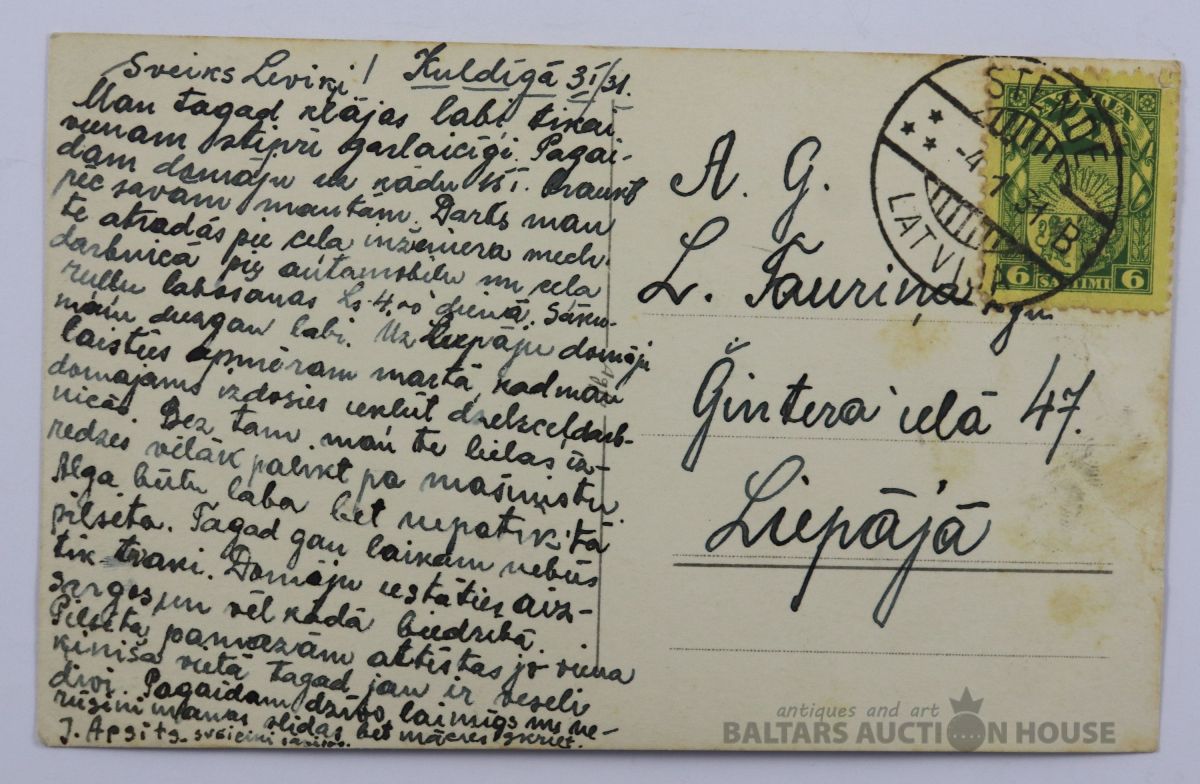 Sveiks Leviķi! Kuldīgā 3I/31.
Man tagad klājas labi, tikai
vienam stipri garlaicīgi. Pagai-
dam domāju uz kādu braukt
pēc savām mantām. Darbs man
te atradās pie ceļa inženiera mech.
darbnīcā pie automobiļu un ceļa
rullu labošanas Ls 4.- dienā. Sāku-
mam diezgan labi. Uz Liepāju domāju
laisties apmēram martā, kad man
domājams izdosies iekļūt dzelzceļdarb-
nīcās. Bez tam man te lielas iz-
redzes vēlāk palikt pa mašinistu.
Alga būtu laba bet nepatīk tā
pilsēta. Tagad gan laikam nebūs
tik traki. Domāju iestāties aiz-
sargos un vēl kādā biedrībā.
Pilsēta pamazām attīstas jo viena
kiniša vietā tagad jau ir veseli
divi. Pagaidam dzīvo laimīgs un ne-
rūsini manas slidas bet mācies skriet.
J. Apsīts
A. G.
L. Tauriņa
kgm
Ģintera ielā 47.
Liepājā
STENDE
-4 1 31 B
LATVIJA
LATVIJA
6 SANTIMI 6
antiques and art
BALTARS AUCTION HOUSE